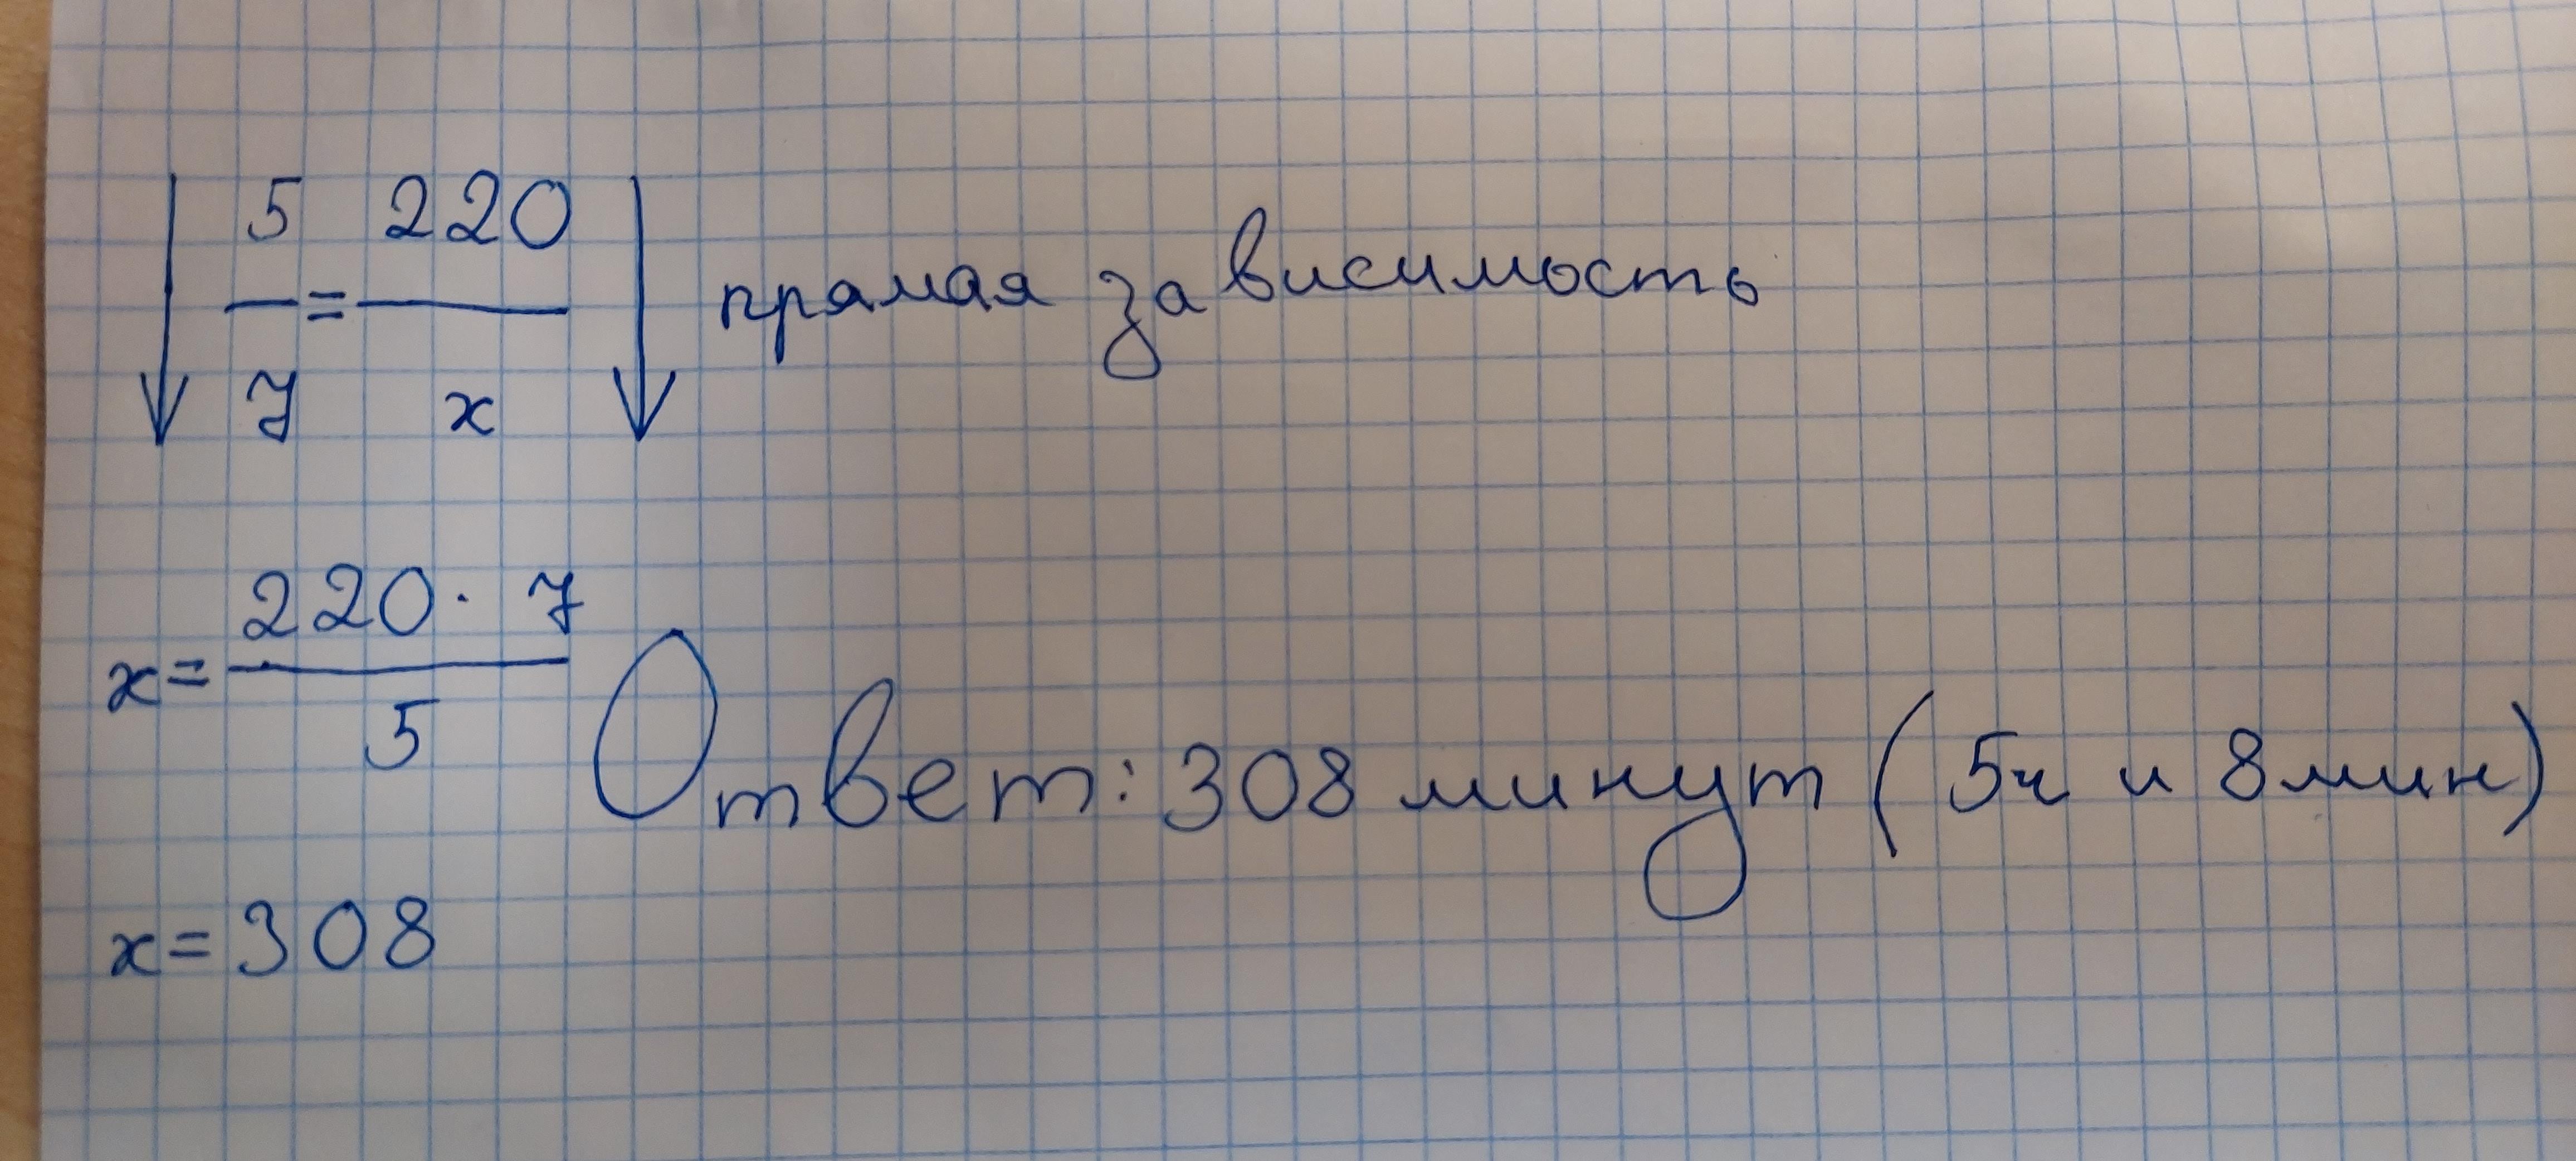 5/7 = 220/x прямая зависимость
x = 220 · 7 / 5
Ответ: 308 минут (5ч и 8 мин)
x = 308